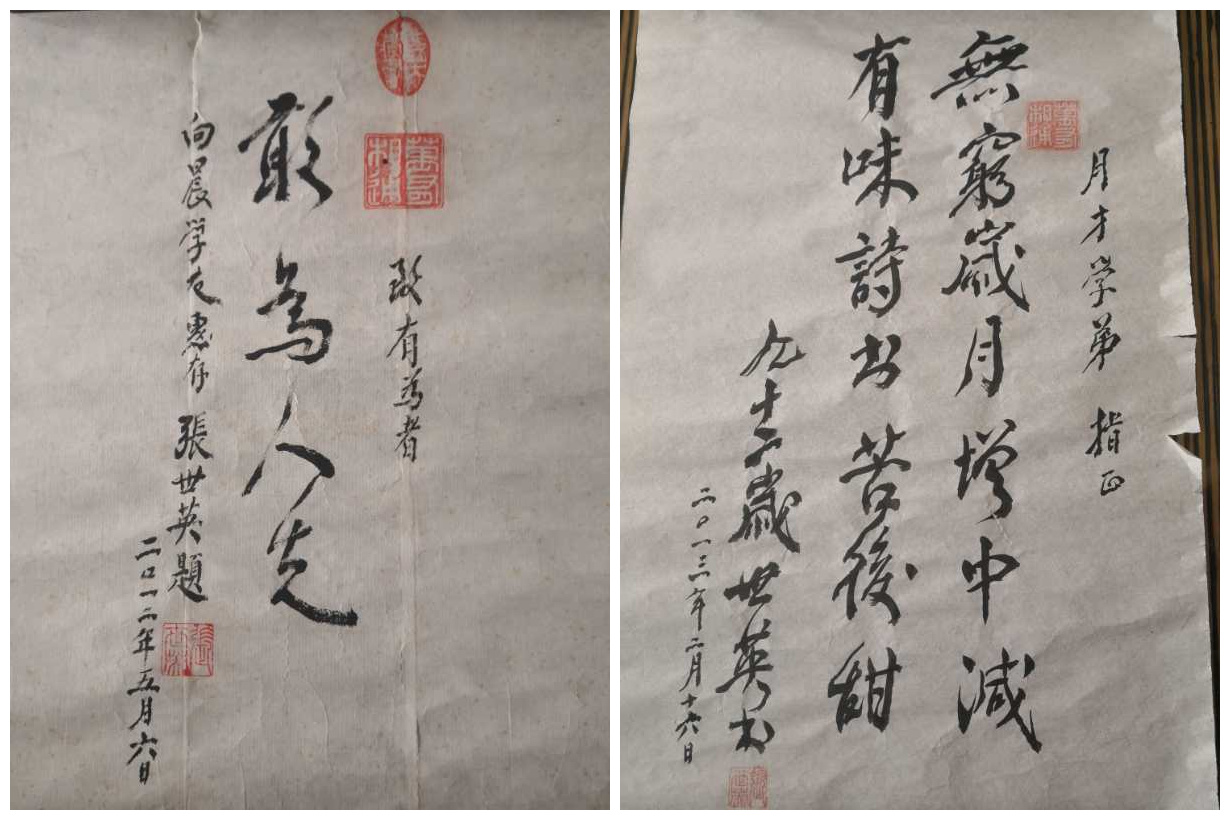 萬有相通
致有為者
敢為人先
向晨学友惠存 張世英題
二〇一二年五月六日
張世英
月才学弟 指正
萬有相通
無窮歲月增中減
有味詩书苦後甜
九十二歲世英书
二〇一三年二月十六日